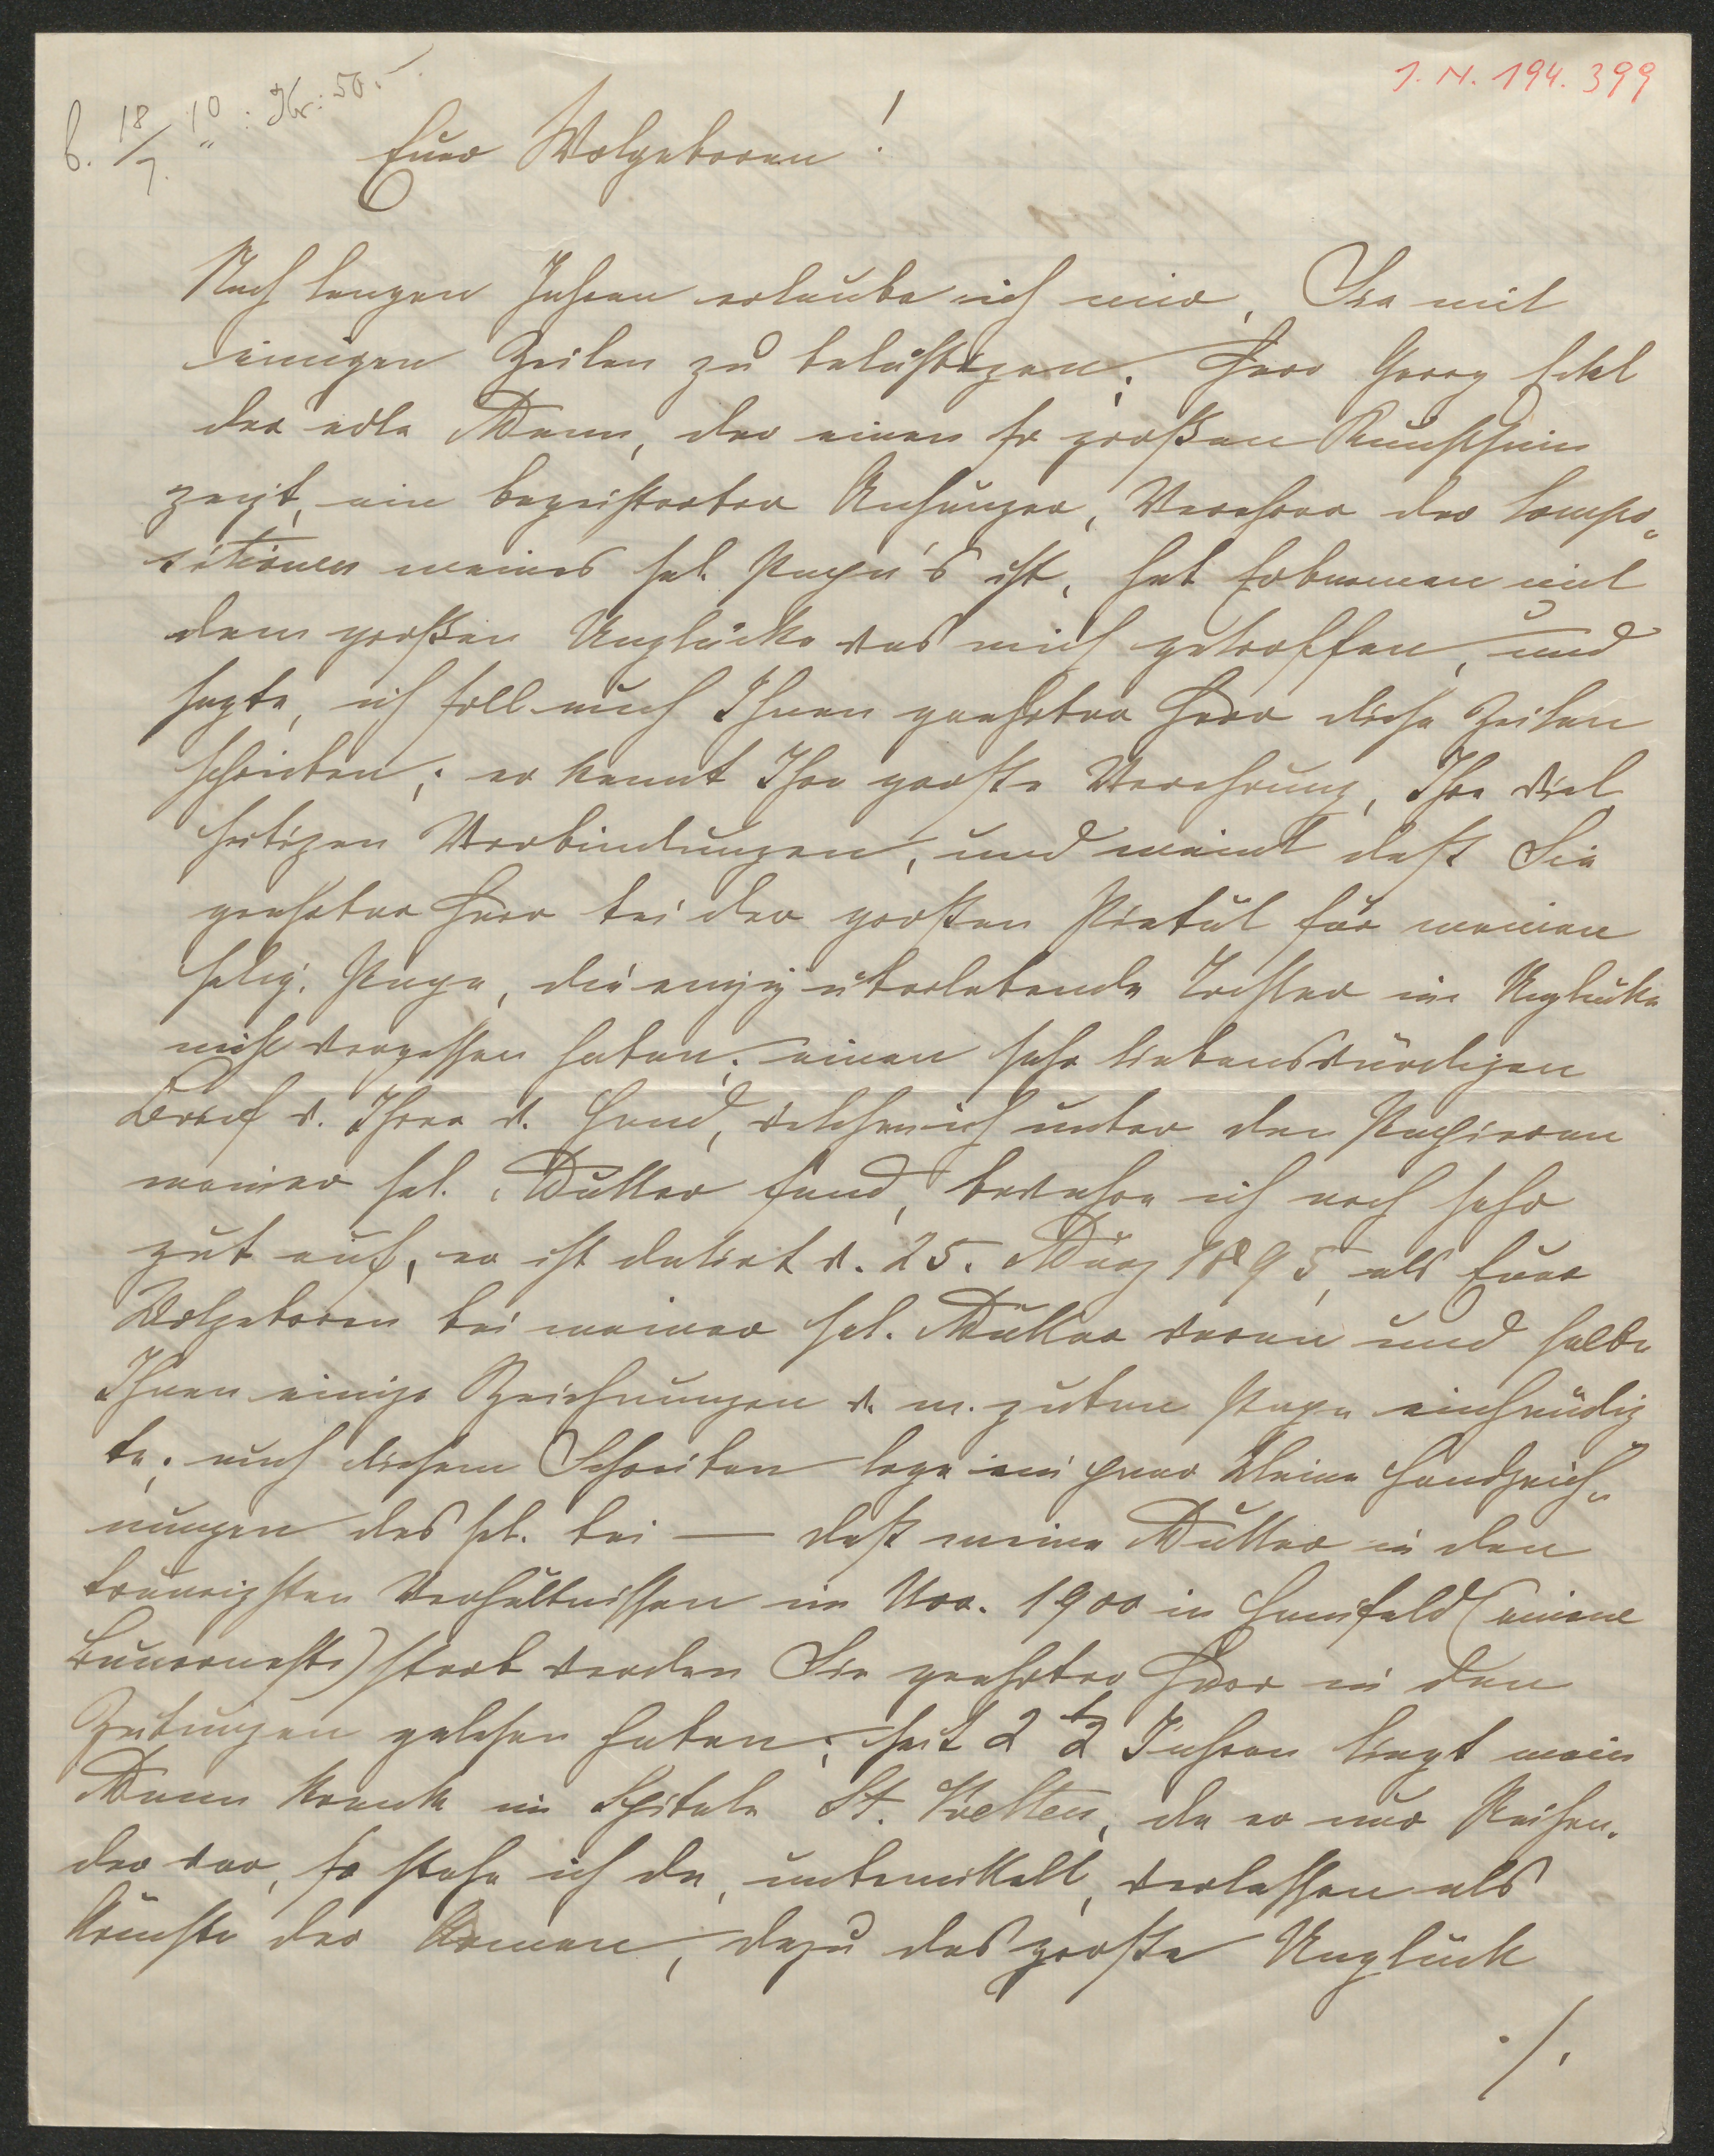 I. N. 194.399
b. 18/7. 10: Kr: 50.
Euer Wolgeboren!
Nach langen Jahren erlaube ich mir, Sie mit
einigen Zeilen zu belästigen. Herr Georg Eckl
der edle Mann, der einen so großen Kunstsinn
zeigt, ein begeisterter Anhänger, Verehrer der Compo„
sitionen meines sel. Papa's ist, hat Erbarmen mit
dem großen Unglücke das mich getroffen, und
sagte, ich soll auch Ihnen geehrter Herr diese Zeilen
schreiben; er kennt Ihre große Verehrung, Ihre viel
seitigen Verbindungen, und meint daß Sie
geehrter Herr bei der großen Pietät für meinen
selig. Papa, die einzig überlebende Tochter im Unglücke
nicht vergessen haben; einen sehr liebenswürdigen
Brief v. Ihrer w. Hand, welchen ich unter den Papieren
meiner sel. Mutter fand, bewahre ich noch sehr
gut auf, er ist datirt v. 25. März 1895, als Euer
Wolgeboren bei meiner sel. Mutter waren und selbe
Ihnen einige Zeichnungen v. m. guten Papa einhändig
te; auch diesem Schreiben lege ein paar kleine Handzeich„
nungen des sel. bei — daß meine Mutter in den
traurigsten Verhältnissen im Nov. 1900 in Hainfeld (einem
Bauernneste) starb werden Sie geehrter Herr in den
Zeitungen gelesen haben; seit 2 1/2 Jahren liegt mein
Mann krank im Spitale St. Pölten, da er nur Reisen„
der war, so stehe ich da, unbemittelt, verlassen als
Ärmste der Armen, dazu das große Unglück
./.